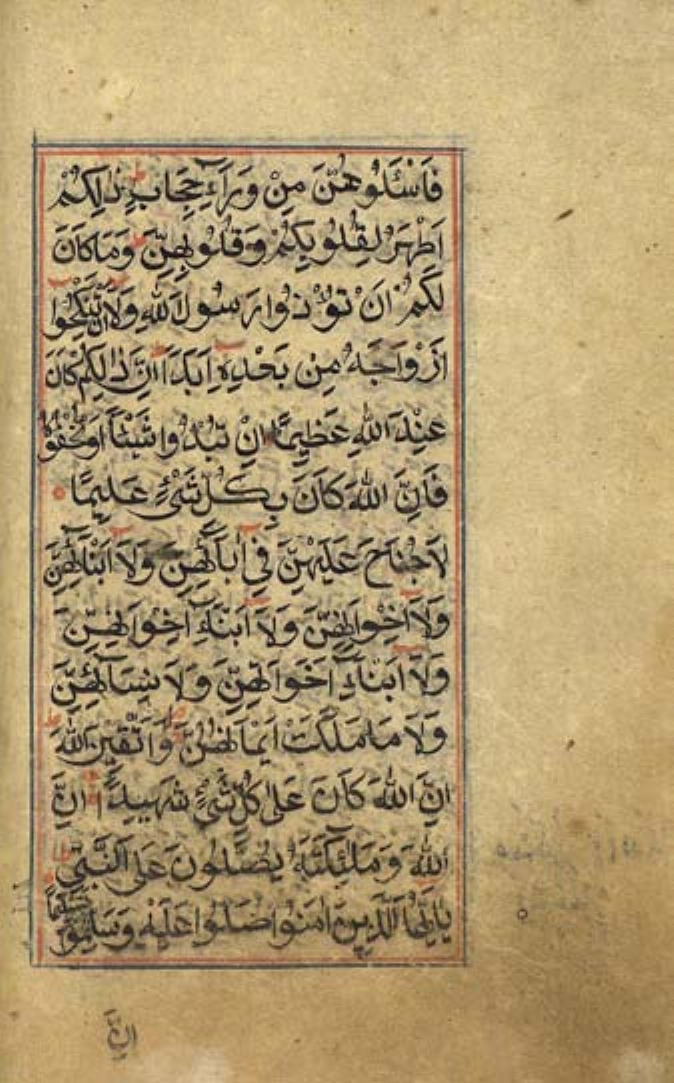 فَاسْئَلُوهُنَّ مِنْ وَرَآءِ حِجَابٍ ذٰلِكُمْ
اَطْهَرُ لِقُلُوبِكُمْ وَقُلُوبِهِنَّ وَمَا كَانَ
لَكُمْ اَنْ تُؤْذُوا رَسُولَ اللّٰهِ وَلَآ اَنْ تَنْكِحُوا
اَزْوَاجَهُ مِنْ بَعْدِهٖ اَبَدًا اِنَّ ذٰلِكُمْ كَانَ
عِنْدَ اللّٰهِ عَظِيمًا اِنْ تُبْدُوا شَيْئًا اَوْ تُخْفُوهُ
فَاِنَّ اللّٰهَ كَانَ بِكُلِّ شَيْءٍ عَلِيمًا
لَا جُنَاحَ عَلَيْهِنَّ فِيٓ اٰبَآئِهِنَّ وَلَآ اَبْنَآئِهِنَّ
وَلَآ اِخْوَانِهِنَّ وَلَآ اَبْنَآءِ اِخْوَانِهِنَّ
وَلَآ اَبْنَآءِ اَخَوَاتِهِنَّ وَلَا نِسَآئِهِنَّ
وَلَا مَا مَلَكَتْ اَيْمَانُهُنَّ وَاتَّقِينَ اللّٰهَ
اِنَّ اللّٰهَ كَانَ عَلٰى كُلِّ شَيْءٍ شَهِيدًا اِنَّ
اللّٰهَ وَمَلٰئِكَتَهُ يُصَلُّونَ عَلَى النَّبِيِّ
يَآ اَيُّهَا الَّذِينَ اٰمَنُوا صَلُّوا عَلَيْهِ وَسَلِّمُوا تَسْلِيمًا
اِنَّ